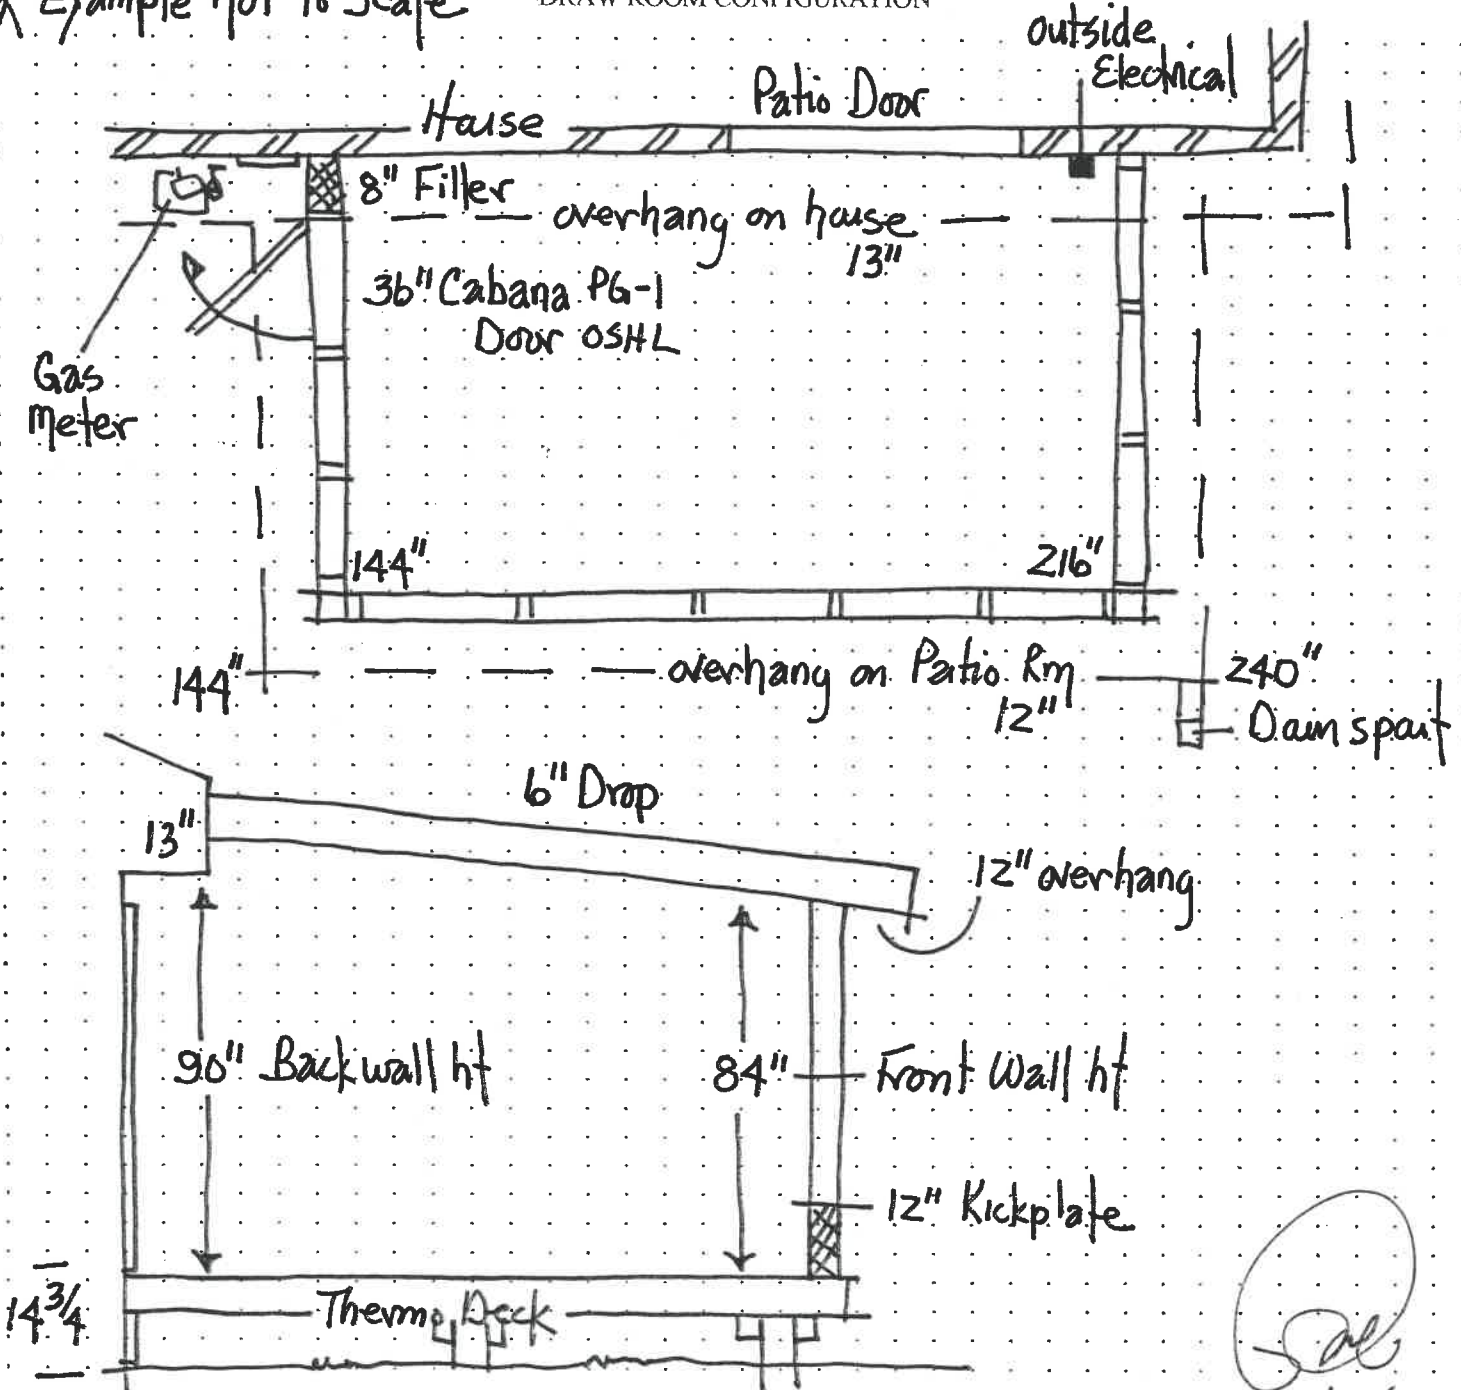 Example not to scale
DRAW ROOM CONFIGURATION
outside
Electrical
Patio Door
House
8" Filler
overhang on house
13"
36" Cabana PG-1
Door OSHL
Gas
Meter
144"
216"
144"
overhang on Patio Rm
12"
240"
Downspout
6" Drop
13"
12" overhang
90" Backwall ht
84"
Front Wall ht
12" Kickplate
14 3/4
Thermo Deck